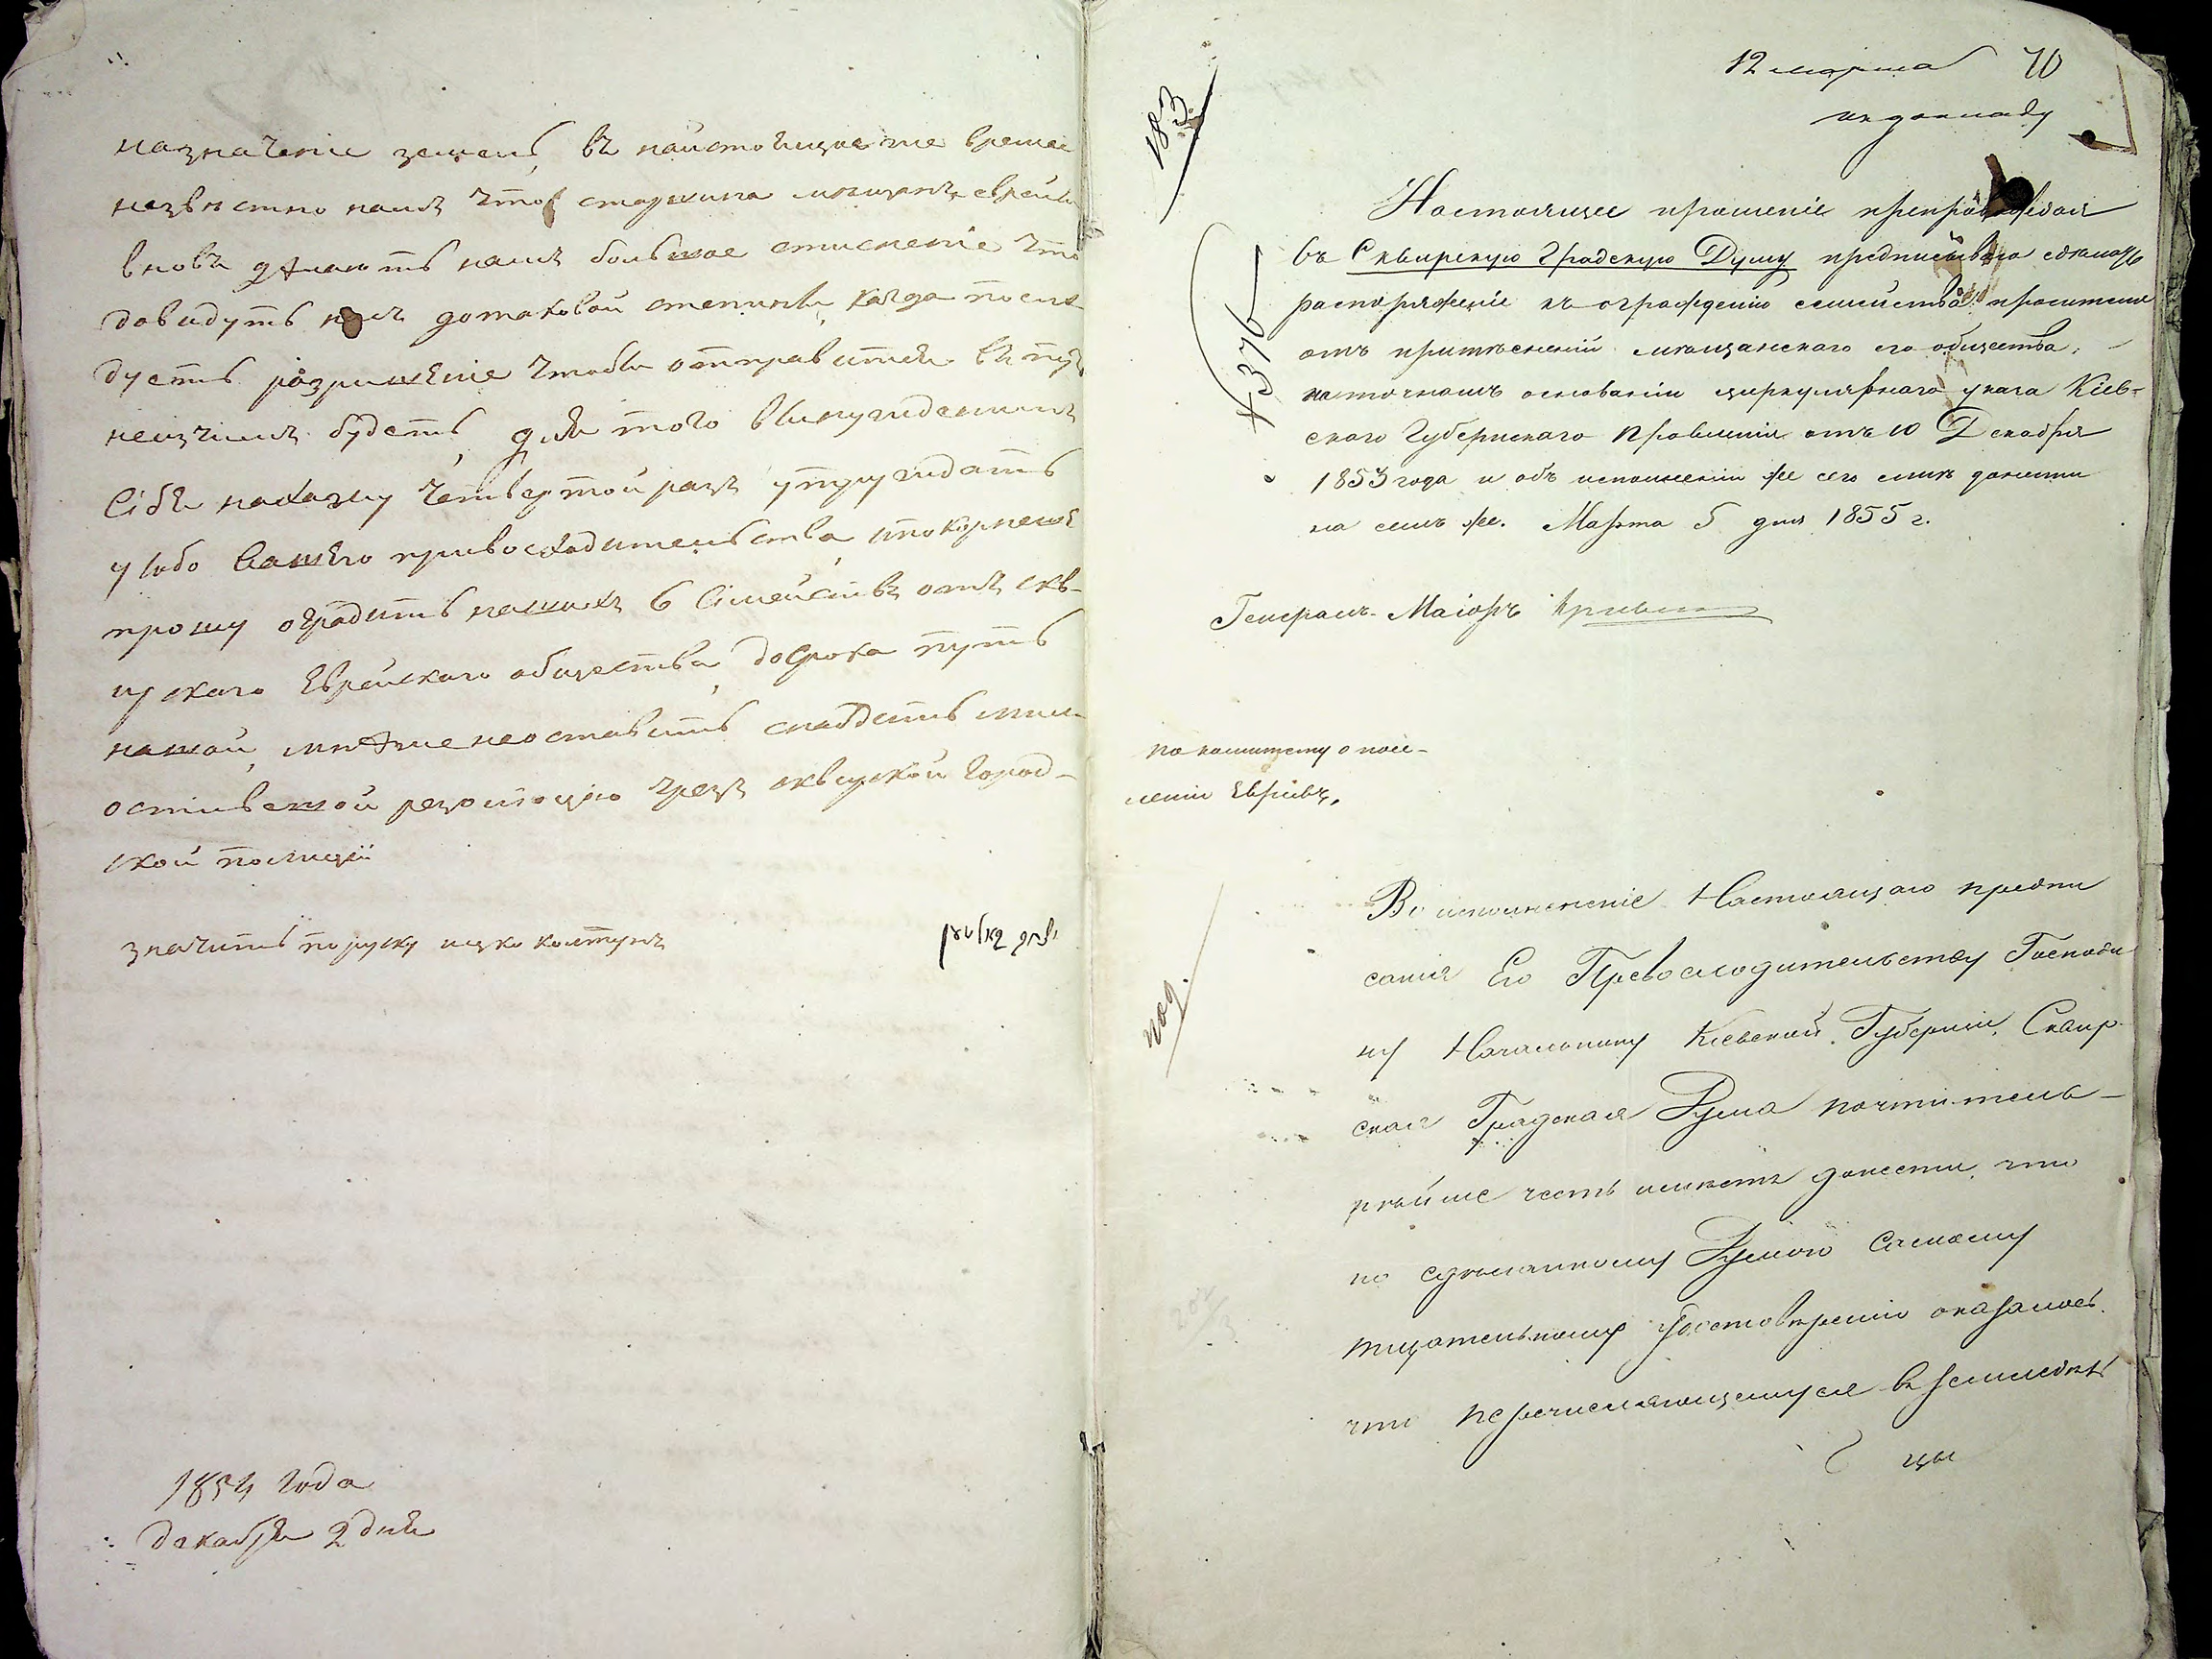 назначеніе земель, въ найстоищое же время
незвѣстно намъ что старшина мѣщанъ евреи
вновъ дѣлаютъ намъ большое стисненіе что
довидутъ насъ дотаковой степины, когда послѣ-
дуетъ розришеніе чтобы отправится въ путь
неизчимъ будетъ, для того вынужденимъ
себя нахажу четвертой разъ утруждатъ
особо вашего превосходительства, ипокорнейше
прошу оградитъ нашихъ 6 семействъ отъ скв-
ирскаго Еврейскаго общества, досрока путъ
нашой, мнѣже неоставитъ снабдетъ мил-
остивешой резолюцію чрезъ сквирской город-
ской полиціи
значитъ поруску ицко колтунъ
1854 года
декабря 2 дня
12 марта 70
къ докладу
183
4376
Настоящее прошеніе препровождая
въ Сквирскую Градскую Думу предписываю сдѣлать
распоряженіе къ огражденію семейства просителя
отъ притѣсненій мѣщанскаго его общества,
на точномъ основаніи циркулярнаго указа Кіев-
скаго Губернскаго Правленія отъ 10 Декабря
1853 года и объ исполненіи же сего мнѣ донести
на семъ же. Марта 5 дня 1855 г.
Генералъ-Маіоръ
по комитету о посе-
леніи Евреевъ,
Во исполненіе Настоящаго предпи
санія Его Превосходительству Господи
ну Начальнику Кіевской Губерніи, Сквир-
ская Градская Дума почтитель-
нѣйше честь имѣетъ донести, что
по сдѣланному Думою самому
тщательному удостовѣренію оказалось
что перечисляющемуся въ земледѣль
цы